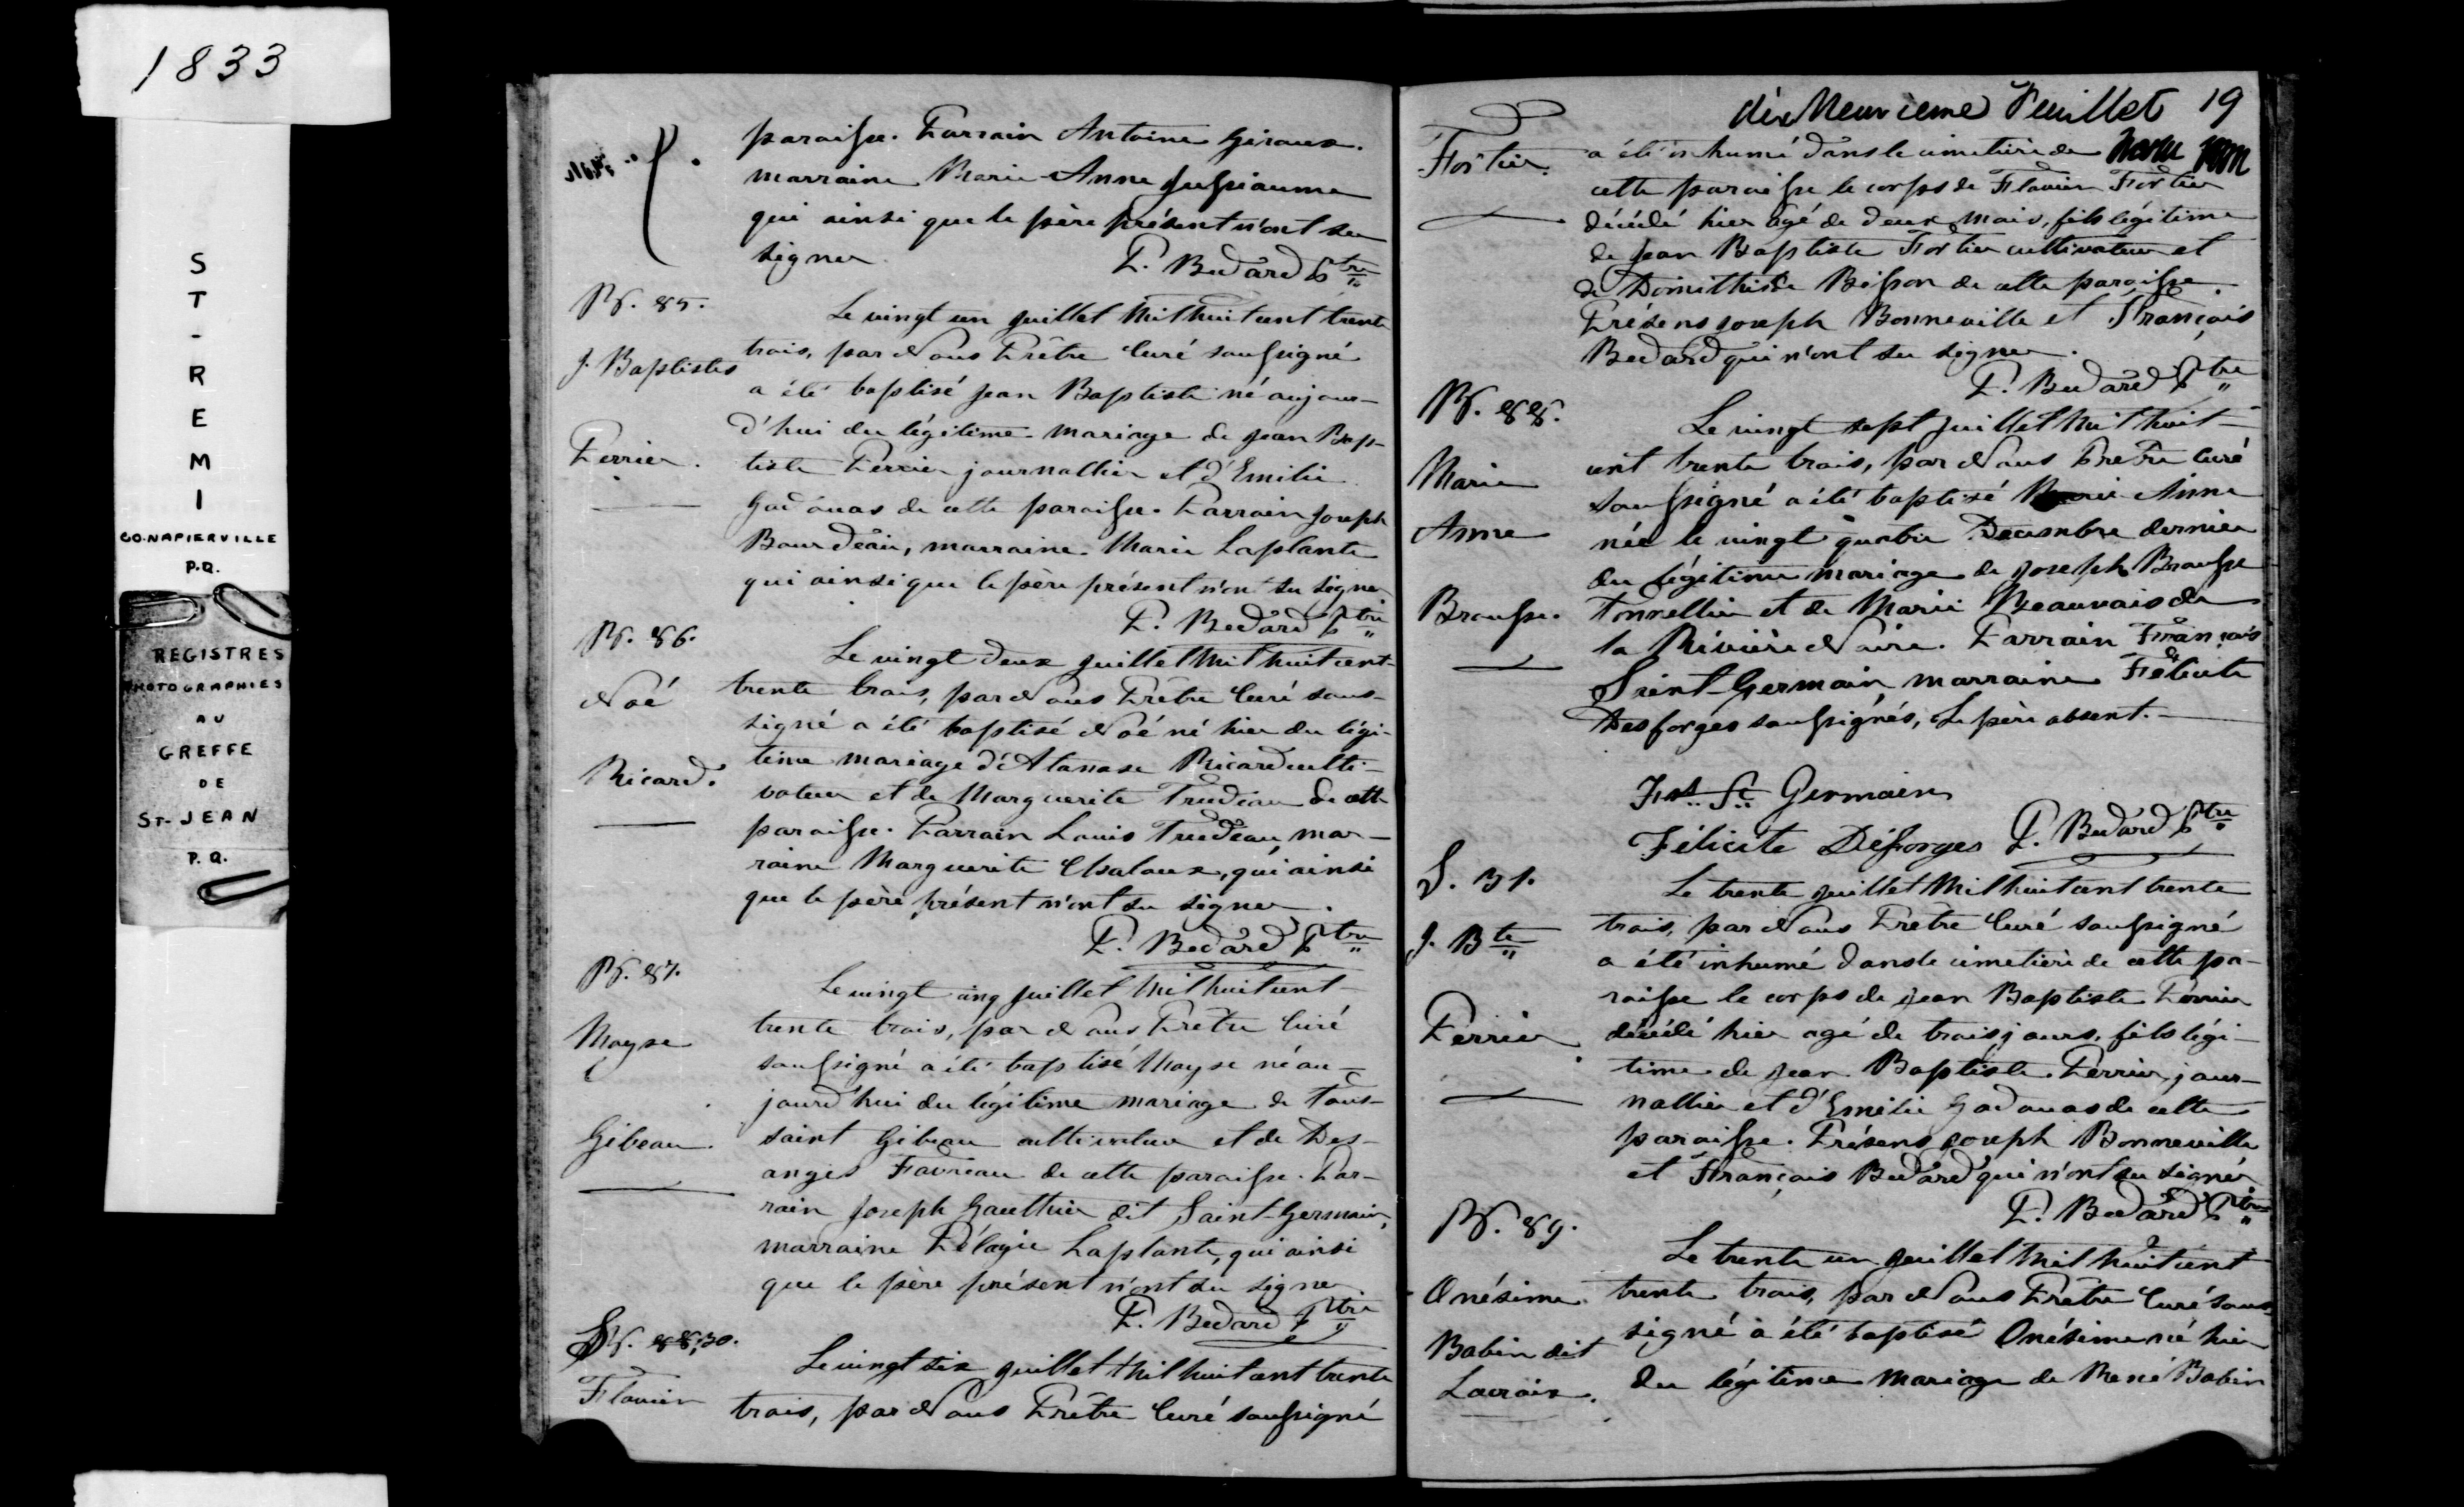 1833
S
T
-
R
E
M
I
CO.NAPIERVILLE
P.Q.
REGISTRES
PHOTOGRAPHIES
AU
GREFFE
DE
ST-JEAN
P.Q.
paroisse. Parrain Antoine Giroux.
marraine Marie Anne
qui ainsi que le père présent n'ont su
signer.
P. Bedard Ptre
B. 85.
J. Baptiste
Perrier.
Le vingt un juillet mil huit cent trente
trois, par Nous Prêtre Curé soussigné
a été baptisé Jean Baptiste né aujour-
d'hui du légitime mariage de Jean Bap-
tiste Perrier journallier et d'Emilie
Gadouas de cette paroisse. Parrain Joseph
Bourdeau, marraine Marie Laplante
qui ainsi que le père présent n'ont su signer
P. Bedard Ptre
B. 86.
Noé
Ricard.
Le vingt deux juillet mil huit cent-
trente trois, par Nous Prêtre Curé sous-
signé a été baptisé Noé né hier du légi-
time mariage d'Atanase Ricard culti-
vateur et de Marguerite Trudeau de cette
paroisse. Parrain Louis Trudeau, mar-
raine Marguerite, qui ainsi
que le père présent n'ont su signer.
P. Bedard Ptre
B. 87.
Moyse
Gibeau.
Le vingt cinq juillet mil huit cent
trente trois, par Nous Prêtre Curé
soussigné a été baptisé Moyse né au-
jourd'hui du légitime mariage de Tous-
saint Gibeau cultivateur et de Des-
anges Favreau de cette paroisse. Par-
rain Joseph Gautthier dit Saint-Germain,
marraine Pélagie Laplante, qui ainsi
que le père présent n'ont su signer
P. Bedard Ptre
S. 88, 30.
Flavien
Le vingt six juillet mil huit cent trente
trois, par Nous Prêtre Curé soussigné
dix Neuvieme Feuillet 19
Fortier.
a été inhumé dans le cimetière de
cette paroisse le corps de Flavien Fortier
décédé hier agé de deux mois, fils légitime
de Jean Baptiste Fortier cultivateur et
de Domithilde Bisson de cette paroisse.
Présens Joseph Bonneville et François
Bedard qui n'ont su signer.
P. Bedard Ptre
B. 88.
Marie
Anne
Brousse.
Le vingt sept juillet mil huit-
cent trente trois, par Nous Prêtre Curé
soussigné a été baptisé Marie Anne
née le vingt quatre Decembre dernier
du légitime mariage de Joseph Brousse
Tonnellier et de Marie Beauvais de
la Rivière Noire. Parrain François
Saint-Germain marraine Félicité
Desforges soussignés, Le père absent.
Frs. St. Germain
Félicite Déforges P. Bedard Ptre
S. 31.
J. Bte
Perrier.
Le trente juillet mil huit cent trente
trois, par Nous Prêtre Curé soussigné
a été inhumé dans le cimetière de cette pa-
roisse le corps de Jean Baptiste Perrier
décédé hier agé de trois jours, fils légi-
time de Jean Baptiste Perrier, jour-
nallier et d'Emélie Gadouas de cette
paroisse. Présens Joseph Bonneville
et François Bedard qui n'ont su signer
P. Bedard Ptre
B. 89.
Onésime
Babin dit
Lacroix.
Le trente un juillet mil huit cent
trente trois, par Nous Prêtre Curé sous-
signé a été baptisé Onésime né hier
du légitime mariage de René Babin